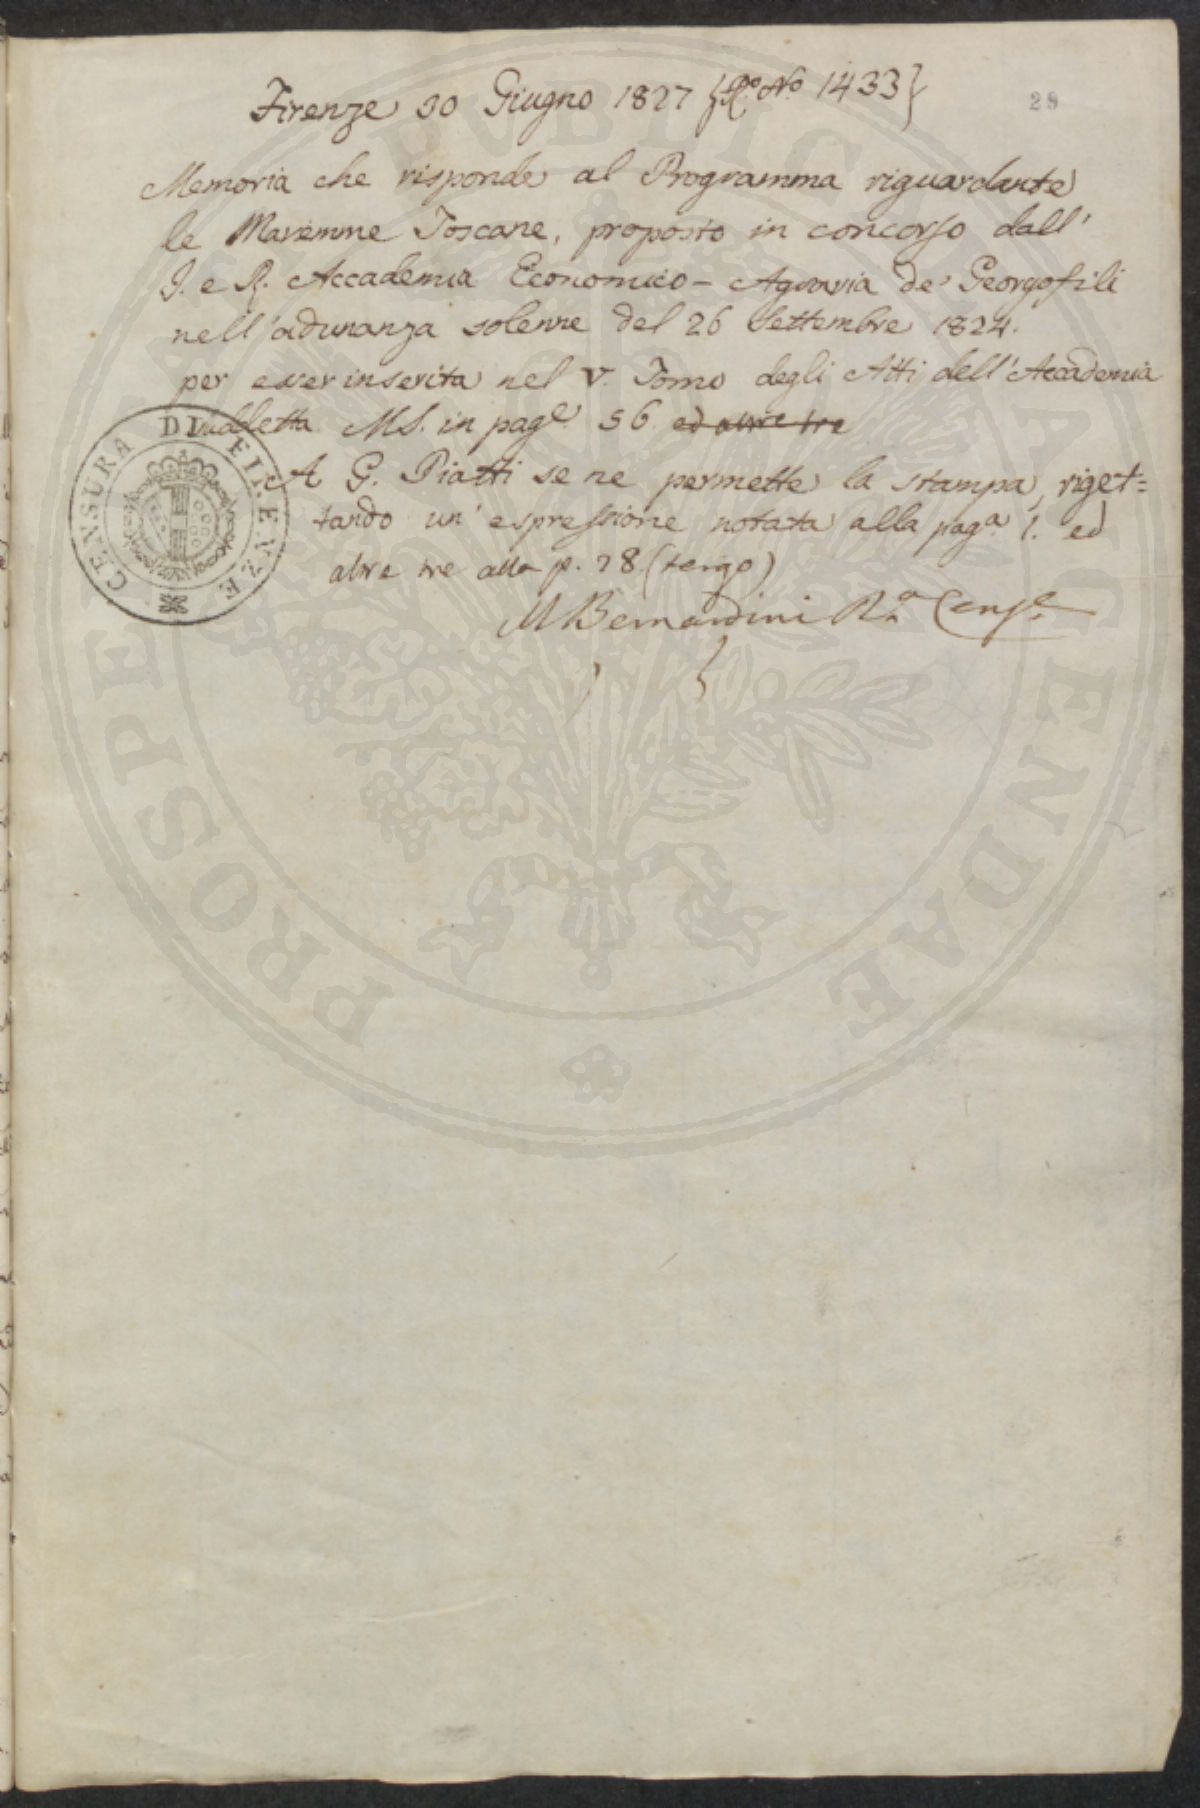 Firenze 30 Giugno 1827 {R.º Nº. 1433}
28
Memoria che risponde al Programma riguardante
le Maremme Toscane, proposto in concorso dall'
I. e R. Accademia Economico - Agraria de' Georgofili
nell'adunanza solenne del 26 Settembre 1824.
per esser inserita nel V. Tomo degli Atti dell'Accademia
suddetta MS. in pag.e 56 ed altre tre
A G. Piatti se ne permette la stampa, riget=
tando un'espressione notata alla pag.a 1. ed
altre tre alla p. 28 (tergo)
M Bernardini R.o Cens.e
CENSURA DI FIRENZE
PROSPERITATI PUBLICAE AUGENDAE